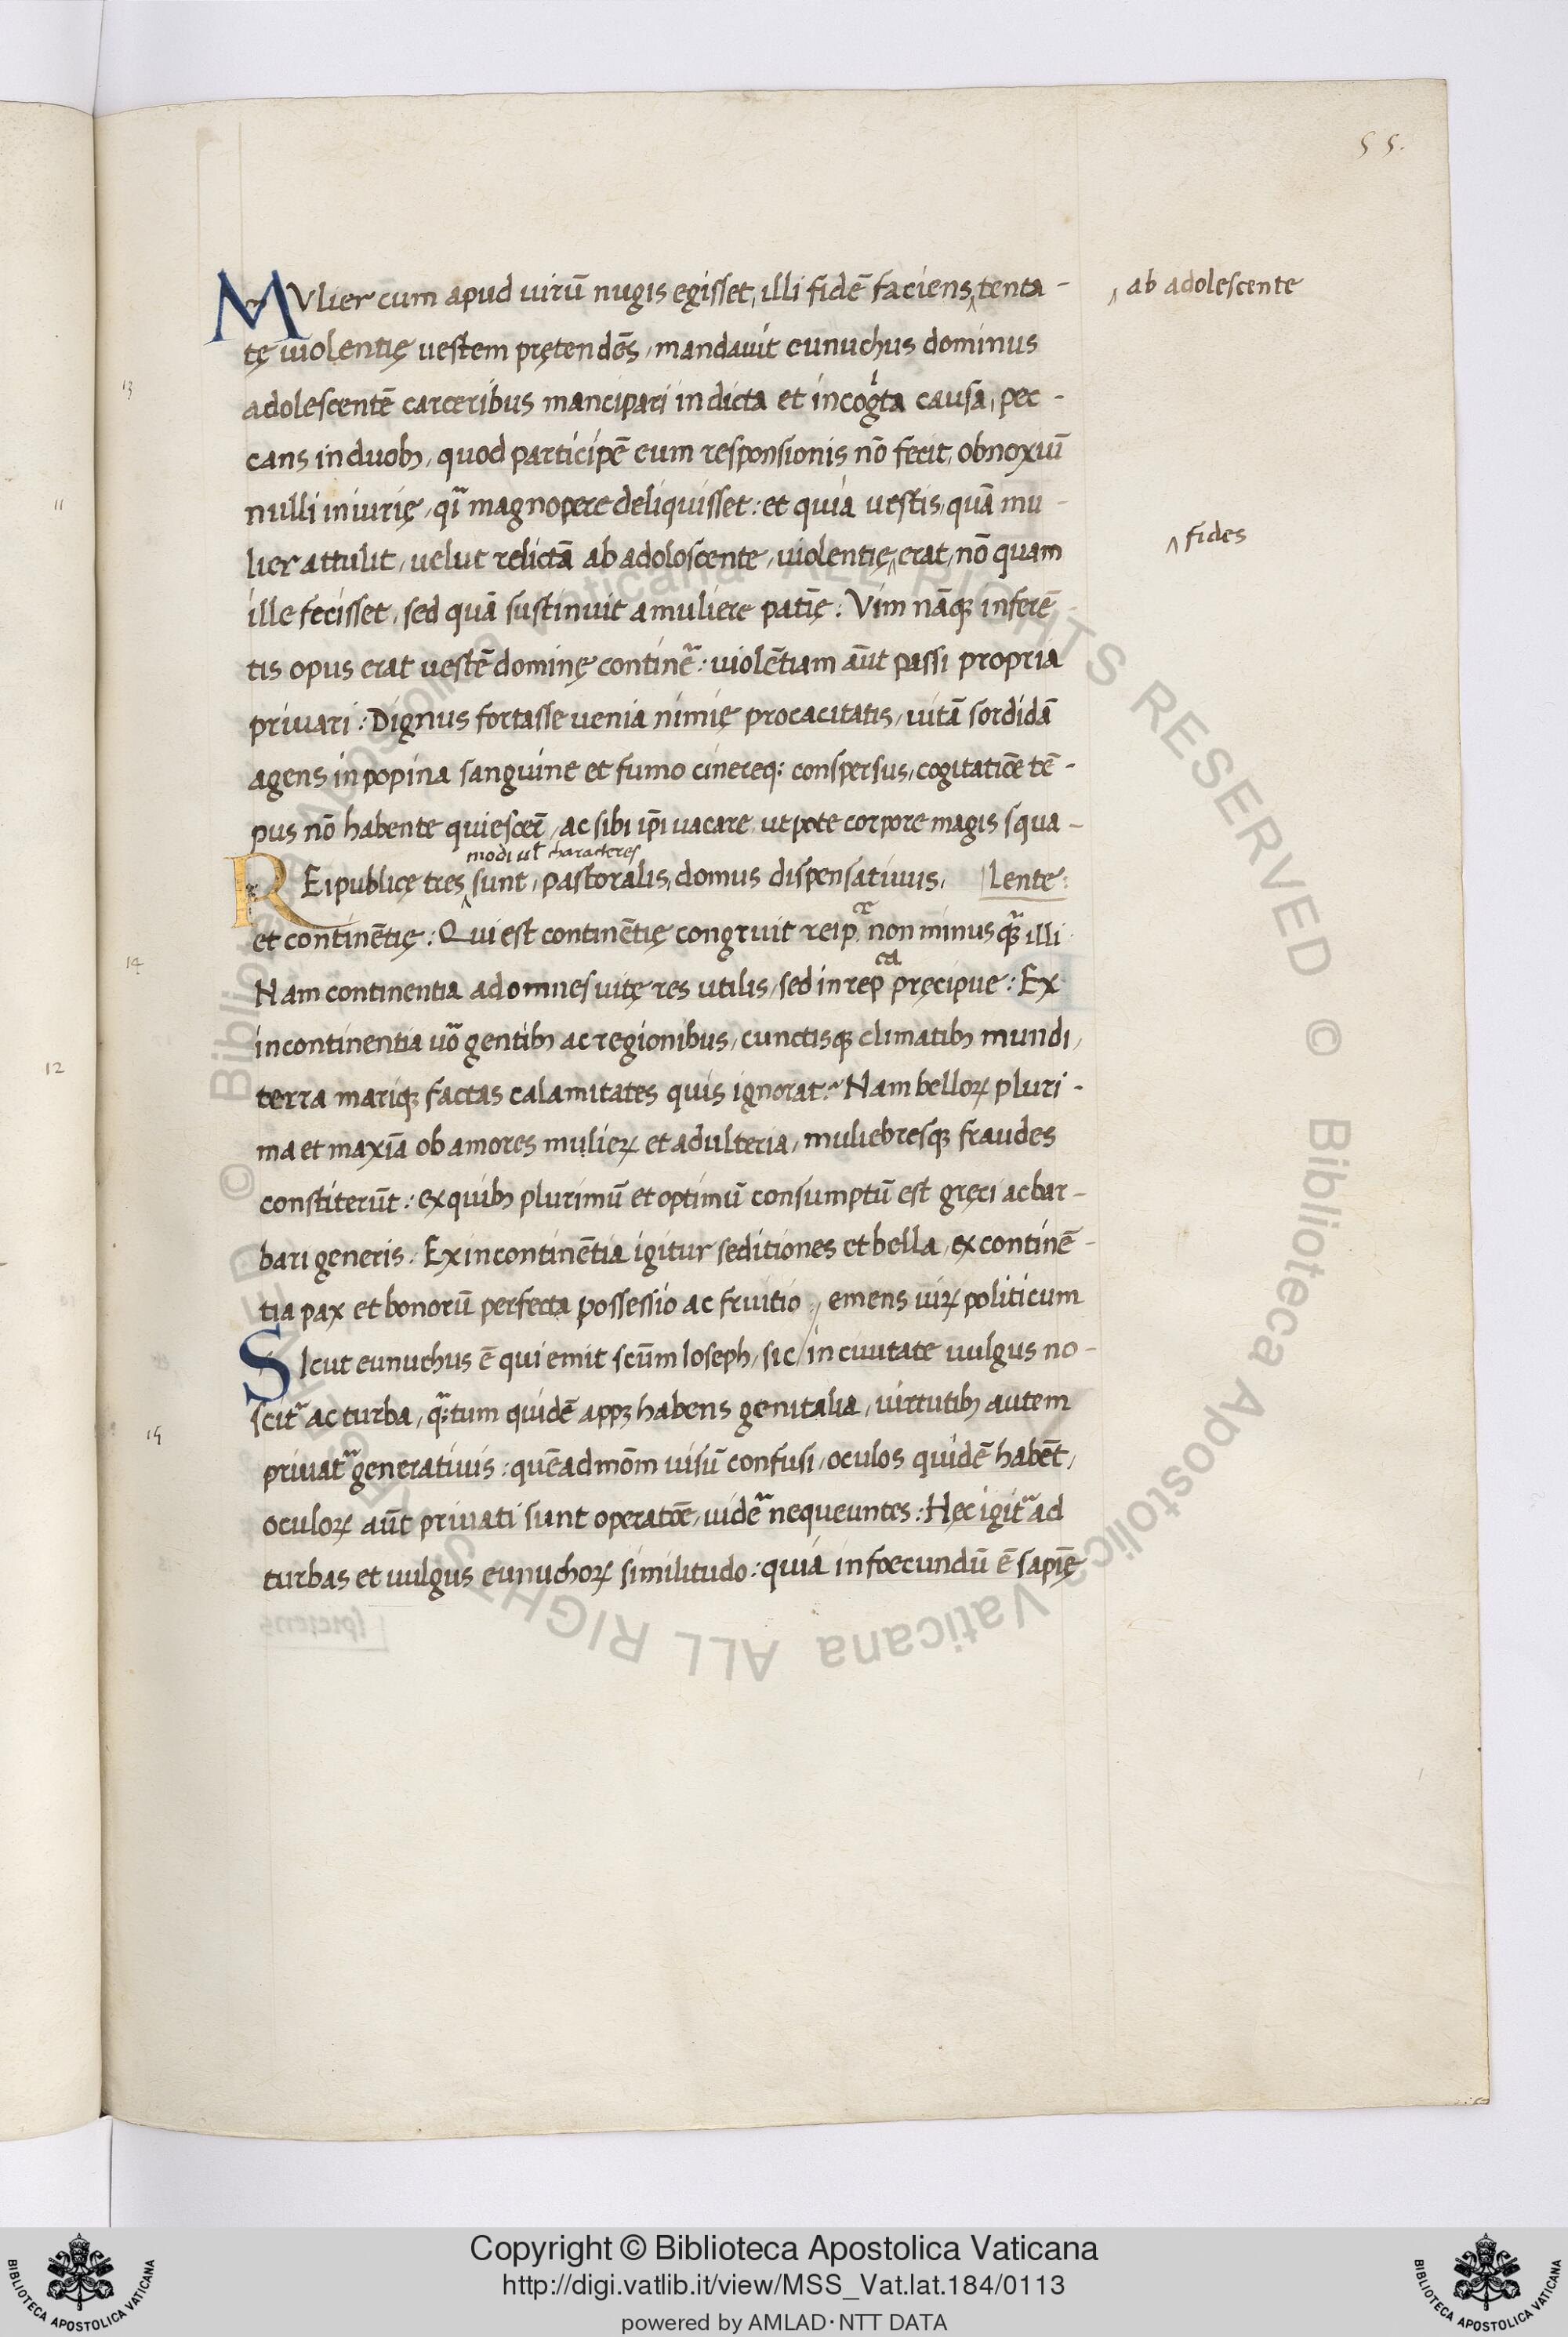 55.
MVlier cum apud uirū nugis egisset, illi fidē faciens ‸ tenta-
‸ ab adolescente
tę uiolentię uestem prętendēs, mandauit eunuchus dominus
13
adolescentē carceribus mancipari indicta et incogita causa, pec-
cans in duobꝫ, quod participē eum responsionis nō fecit, obnoxiū
11
nulli iniurię, qͣ magnopere deliquisset: et quia uestis, quā mu-
lier attulit, uelut relictā ab adoloscente, uiolentię ‸ erat, nō quam
‸ fides
ille fecisset, sed quā sustinuit a muliere patiē: Vim nāqꝫ inferē-
tis opus erat uestē dominę continēͬ: uiolētiam aūt passi propria
priuari: Dignus fortasse uenia nimię procacitatis, uitā sordidā
agens in popina sanguine et fumo cinereqꝫ conspersus, cogitatiōe tē-
pus nō habente quiescer̄, ac sibi ip̄i uacare ut pote corpore magis squa-
modi ul̄ characteres
REipublicę tres ‸ sunt, pastoralis, domus dispensatiuus, lente:
et continētię: Qui est continētię congruit reip. ce non minus qͣꝫ illi
14
Nam continentia ad omnes uitę res utilis, sed in rep ca pręcipue: Ex
incontinentia uͦo gentibꝫ ac regionibus, cunctisqꝫ climatibꝫ mundi,
12
terra mariqꝫ factas calamitates quis ignorat? Nam belloꝝ pluri-
ma et maxīa ob amores mulieꝝ et adulteria, muliebresqꝫ fraudes
constiterūt: ex quibꝫ plurimū et optimū consumptū est gręci ac bar-
bari generis. Ex incontinētia igitur seditiones et bella, ex continē-
tia pax et bonorū perfecta possessio ac fruitio, emens uiꝝ politicum
SIcut eunuchus ē qui emit scūm Ioseph, sic / in ciuitate uulgus no-
scitͬ ac turba, qͣꝫtum quidē appꝫ habens genitalia, uirtutibꝫ autem
15
priuatͬ generatiuis: quēadmōm uisū confusi, oculos quidē habēt,
oculoꝝ aūt priuati sunt operatōe, uidēͬ nequeuntes: Hęc igitͬ ad
turbas et uulgus eunuchoꝝ similitudo: quia infoecundū ē sapię
Copyright © Biblioteca Apostolica Vaticana
http://digi.vatlib.it/view/MSS_Vat.lat.184/0113
powered by AMLAD·NTT DATA
BIBLIOTECA APOSTOLICA VATICANA
BIBLIOTECA APOSTOLICA VATICANA
© Biblioteca Apostolica Vaticana ALL RIGHTS RESERVED © Biblioteca Apostolica Vaticana ALL RIGHTS RESERVED